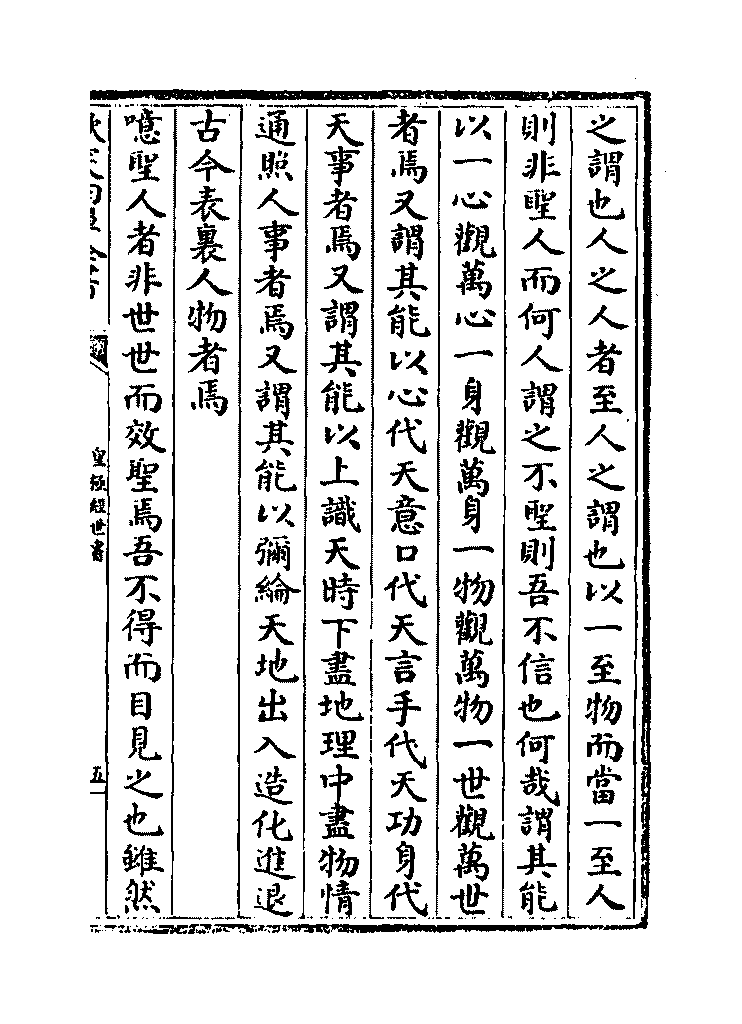 之謂也人之人者至人之謂也以一至物而當一至人
則非聖人而何人謂之不聖則吾不信也何哉謂其能
以一心觀萬心一身觀萬身一物觀萬物一世觀萬世
者焉又謂其能以心代天意口代天言手代天功身代
天事者焉又謂其能以上識天時下盡地理中盡物情
通照人事者焉又謂其能以彌綸天地出入造化進退
古今表裏人物者焉
噫聖人者非世世而效聖焉吾不得而目見之也雖然
皇極經世書
五